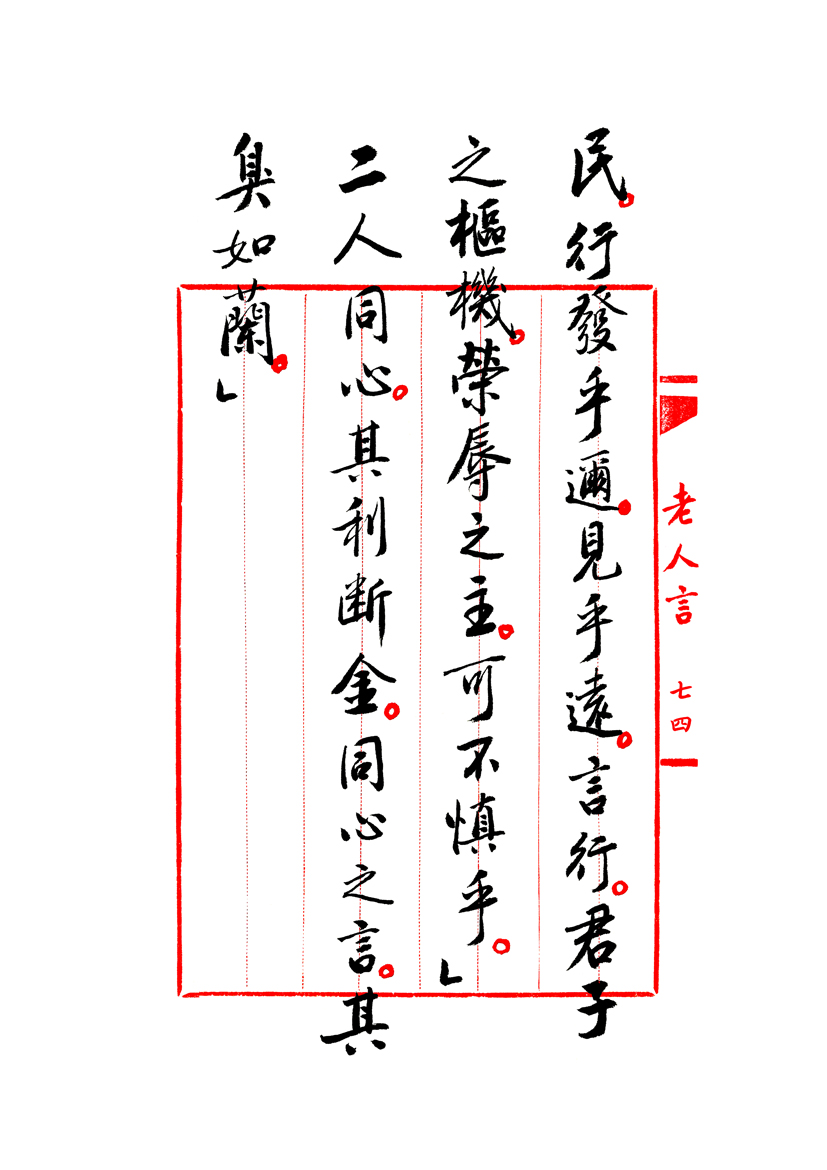 民。行發乎邇。見乎遠。言行。君子
之樞機。榮辱之主。可不慎乎。」
二人同心。其利断金。同心之言。其
臭如蘭。」
老人言 七四